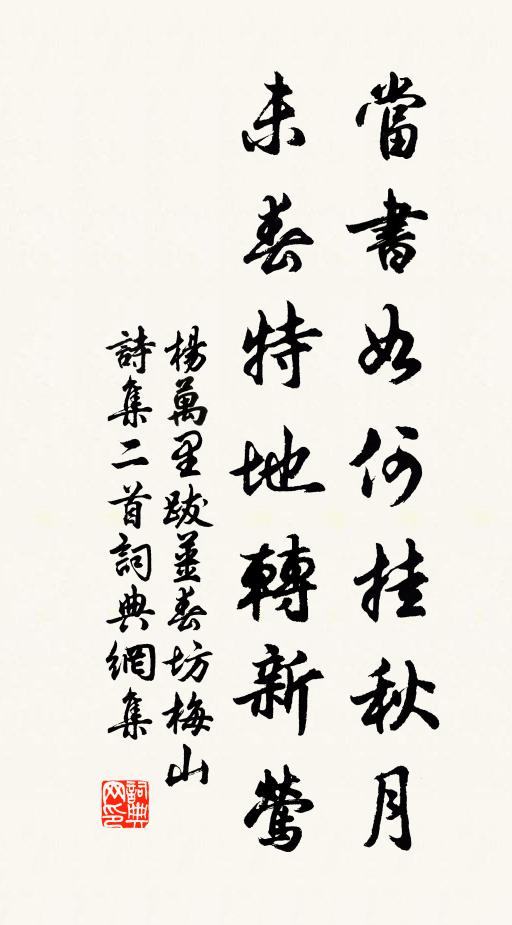 當書如何挂秋月
未春特地轉新鶯
楊萬里跋薑春坊梅山
詩集二首詞典網集
詞典
网印